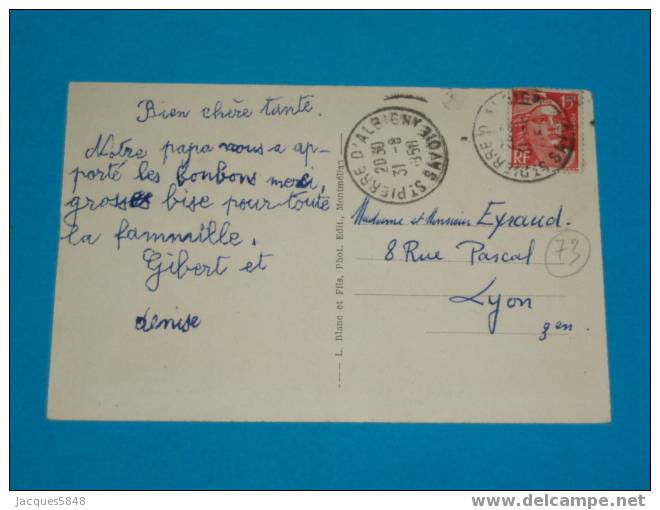 Bien chère tante.
Notre papa nous a ap-
porté les bonbons merci,
grosses bise pour toute
la fammaille.
Gibert et
denise
L. Blanc et Fils, Phot. Edit., Montmélian
ST PIERRE D'ALBIGNY SAVOIE
2030
31 - 8
1951
15F
RF
Madame et Monsieur Eyraud.
8 Rue Pascal
Lyon
3 en.
73
Jacques5848
delcampe.net